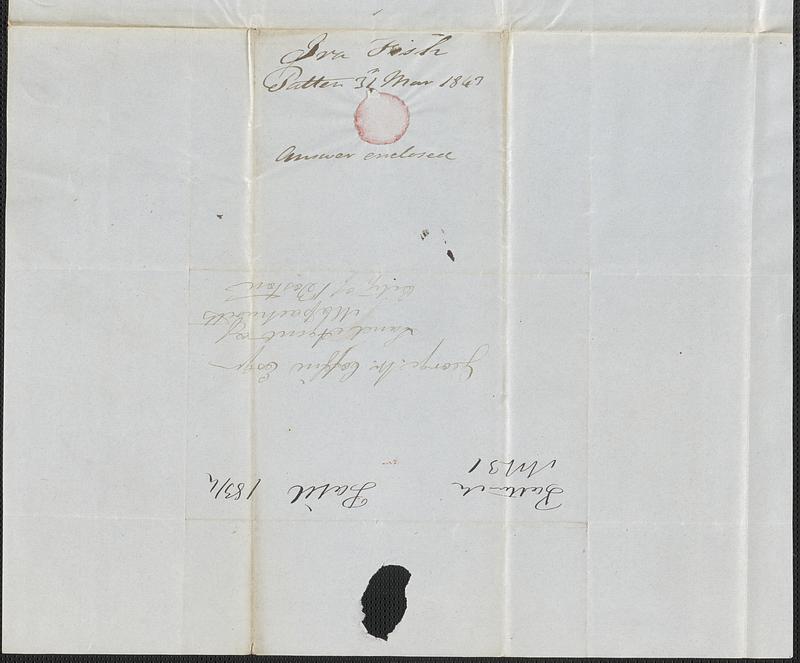 Ira Fish
Patten 31 Mar 1847
Answer enclosed
George W. Coffin Esqr
Land Agent of
Massachusetts
City of Boston
M 31
Paid